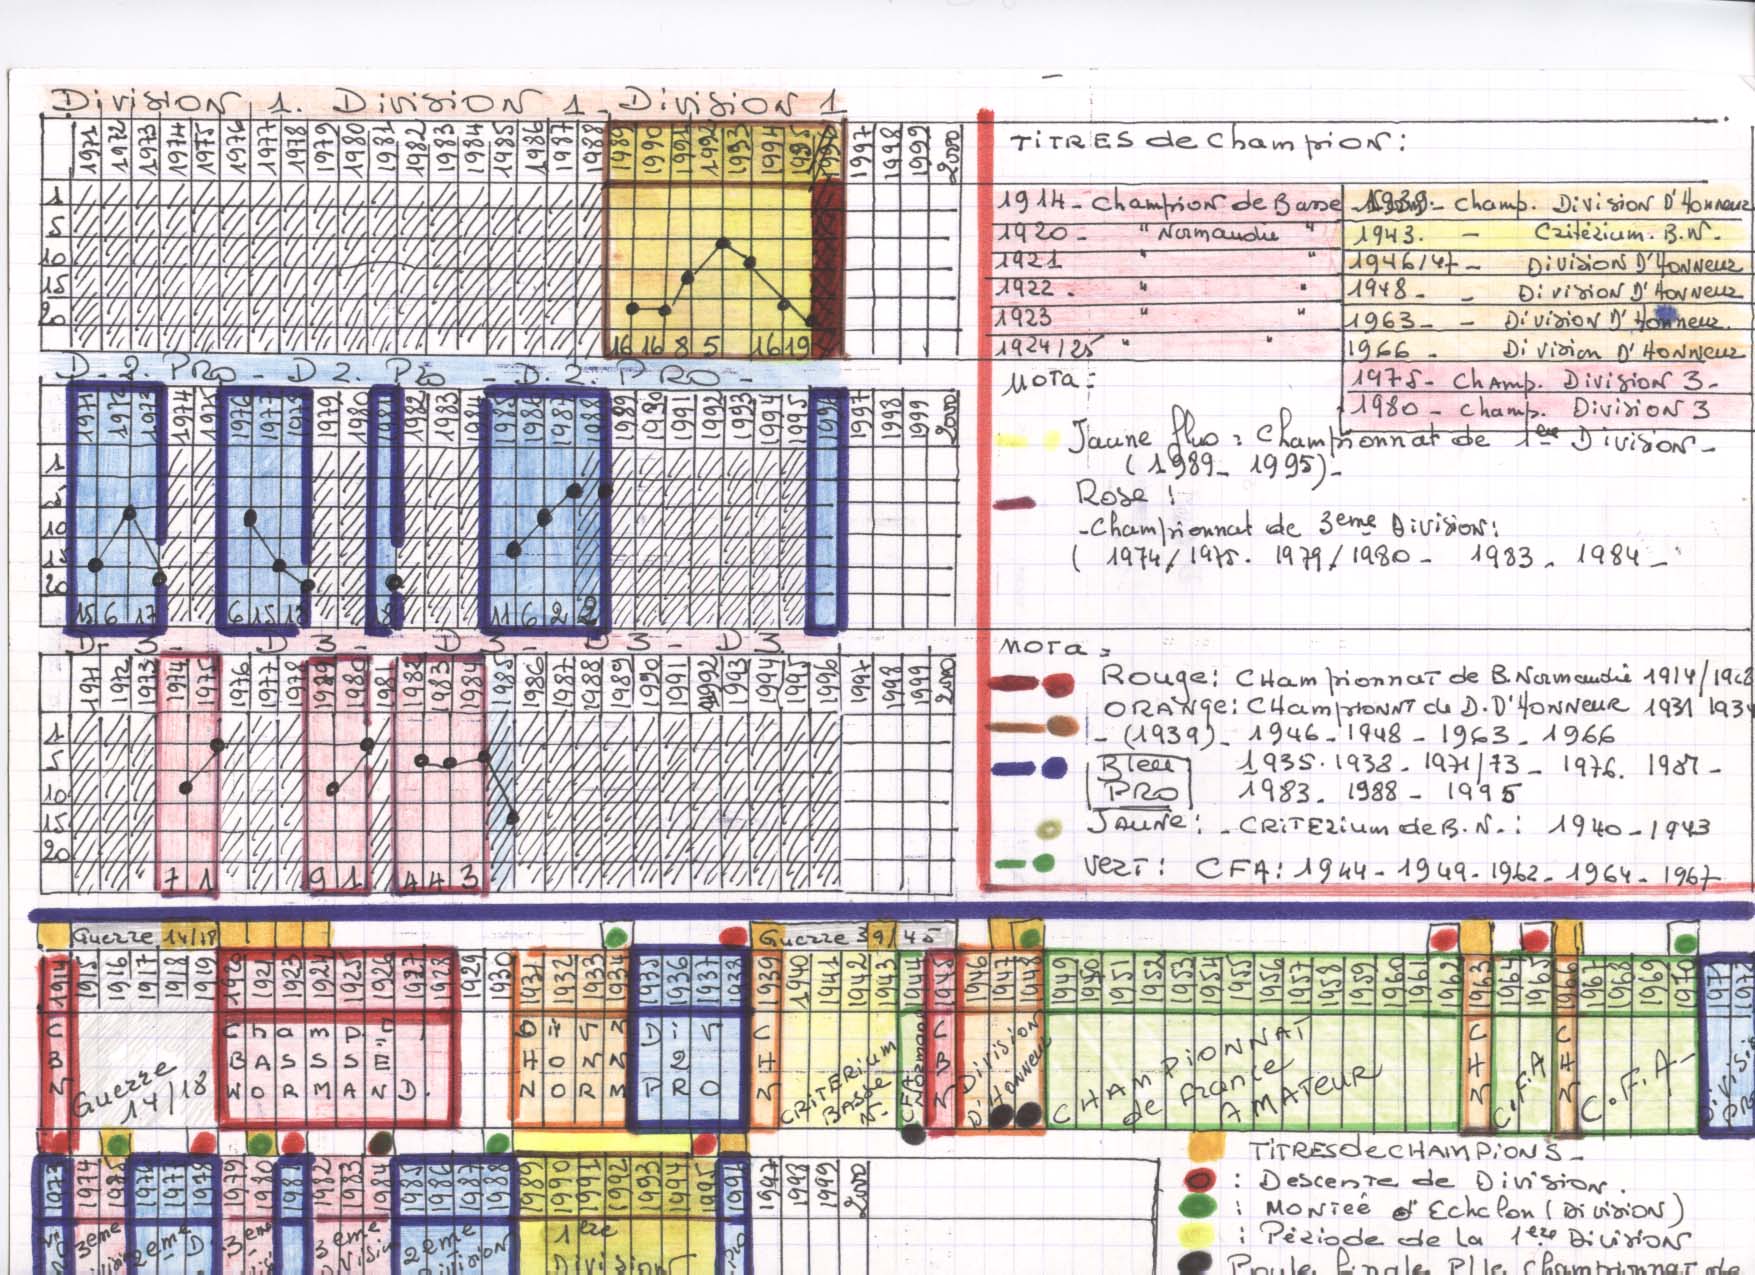 Division 1. Division 1 - Division 1
1971 1972 1973 1974 1975 1976 1977 1978 1979 1980 1981 1982 1983 1984 1985 1986 1987 1988 1989 1990 1991 1992 1993 1994 1995 1996 1997 1998 1999 2000
1
5
10
15
20
16 16 8 5 16 19
D. 2. PRO - D 2. PRO - D. 2. PRO -
1971 1972 1973 1974 1975 1976 1977 1978 1979 1980 1981 1982 1983 1984 1985 1986 1987 1988 1989 1990 1991 1992 1993 1994 1995 1996 1997 1998 1999 2000
1
5
10
15
20
15 6 17 6 15 18 11 6 2 2
D. 3. D 3. D 3 - D 3 - D 3
1971 1972 1973 1974 1975 1976 1977 1978 1979 1980 1981 1982 1983 1984 1985 1986 1987 1988 1989 1990 1991 1992 1993 1994 1995 1996 1997 1998 1999 2000
1
5
10
15
20
7 1 9 1 4 4 3
TITRES de Champion :
1914 - Champion de Basse
1920 - " Normandie "
1921 " "
1922 . " "
1923 " "
1924/25 " "
1939 - Champ. Division D'Honneur
1943. - Critérium. B.N.
1946/47 - Division D'Honneur
1948 - - Division D'Honneur
1963 - - Division D'Honneur.
1966 - Division D'Honneur
1975 - Champ. Division 3 -
1980 - Champ. Division 3
Nota :
Jaune fluo : Championnat de 1ere Division -
( 1989 - 1995) -
Rose :
- Championnat de 3eme Division :
( 1974/1975. 1979/1980 - 1983 . 1984 -
NOTA :
Rouge : Championnat de B. Normandie 1914/1928
ORANGE : Championnt de D. D'Honneur 1931 1934
- (1939) - 1946 - 1948 - 1963 - 1966
Bleu 1935. 1938 - 1971/73 - 1976. 1987 -
PRO 1983. 1988 - 1995
JAUNE : - CRITERIUM de B.N. : 1940 - 1943
Vert : CFA : 1944 - 1949 - 1962 - 1964 - 1967
Guerre 14/18 Guerre 39/45
1914 1915 1916 1917 1918 1919 1920 1921 1923 1924 1925 1926 1927 1928 1929 1930 1931 1932 1933 1934 1935 1936 1937 1938 1939 1940 1941 1942 1943 1944 1945 1946 1947 1948 1949 1950 1951 1952 1953 1954 1955 1956 1957 1958 1959 1960 1961 1962 1963 1964 1965 1966 1967 1968 1969 1970 1971 1972
CBN
Guerre
14/18
BASSE
NORMAND.
D2
PRO
CRITERIUM
BASSE
N.
CFA
CBN
Division
D'Honneur
CHAMPIONNAT
de France
AMATEUR
CHN
C.F.A
CHN
C.F.A -
TITRES de CHAMPIONS -
: Descente de Division.
: Montée d'Echelon (Division)
: Période de la 1ere Division
1973 1974 1975 1976 1977 1978 1979 1980 1981 1982 1983 1984 1985 1986 1987 1988 1989 1990 1991 1992 1993 1994 1995 1996 1997 1998 1999 2000
3eme
2eme D.
3eme
3eme
2eme
Division
1ere
Division